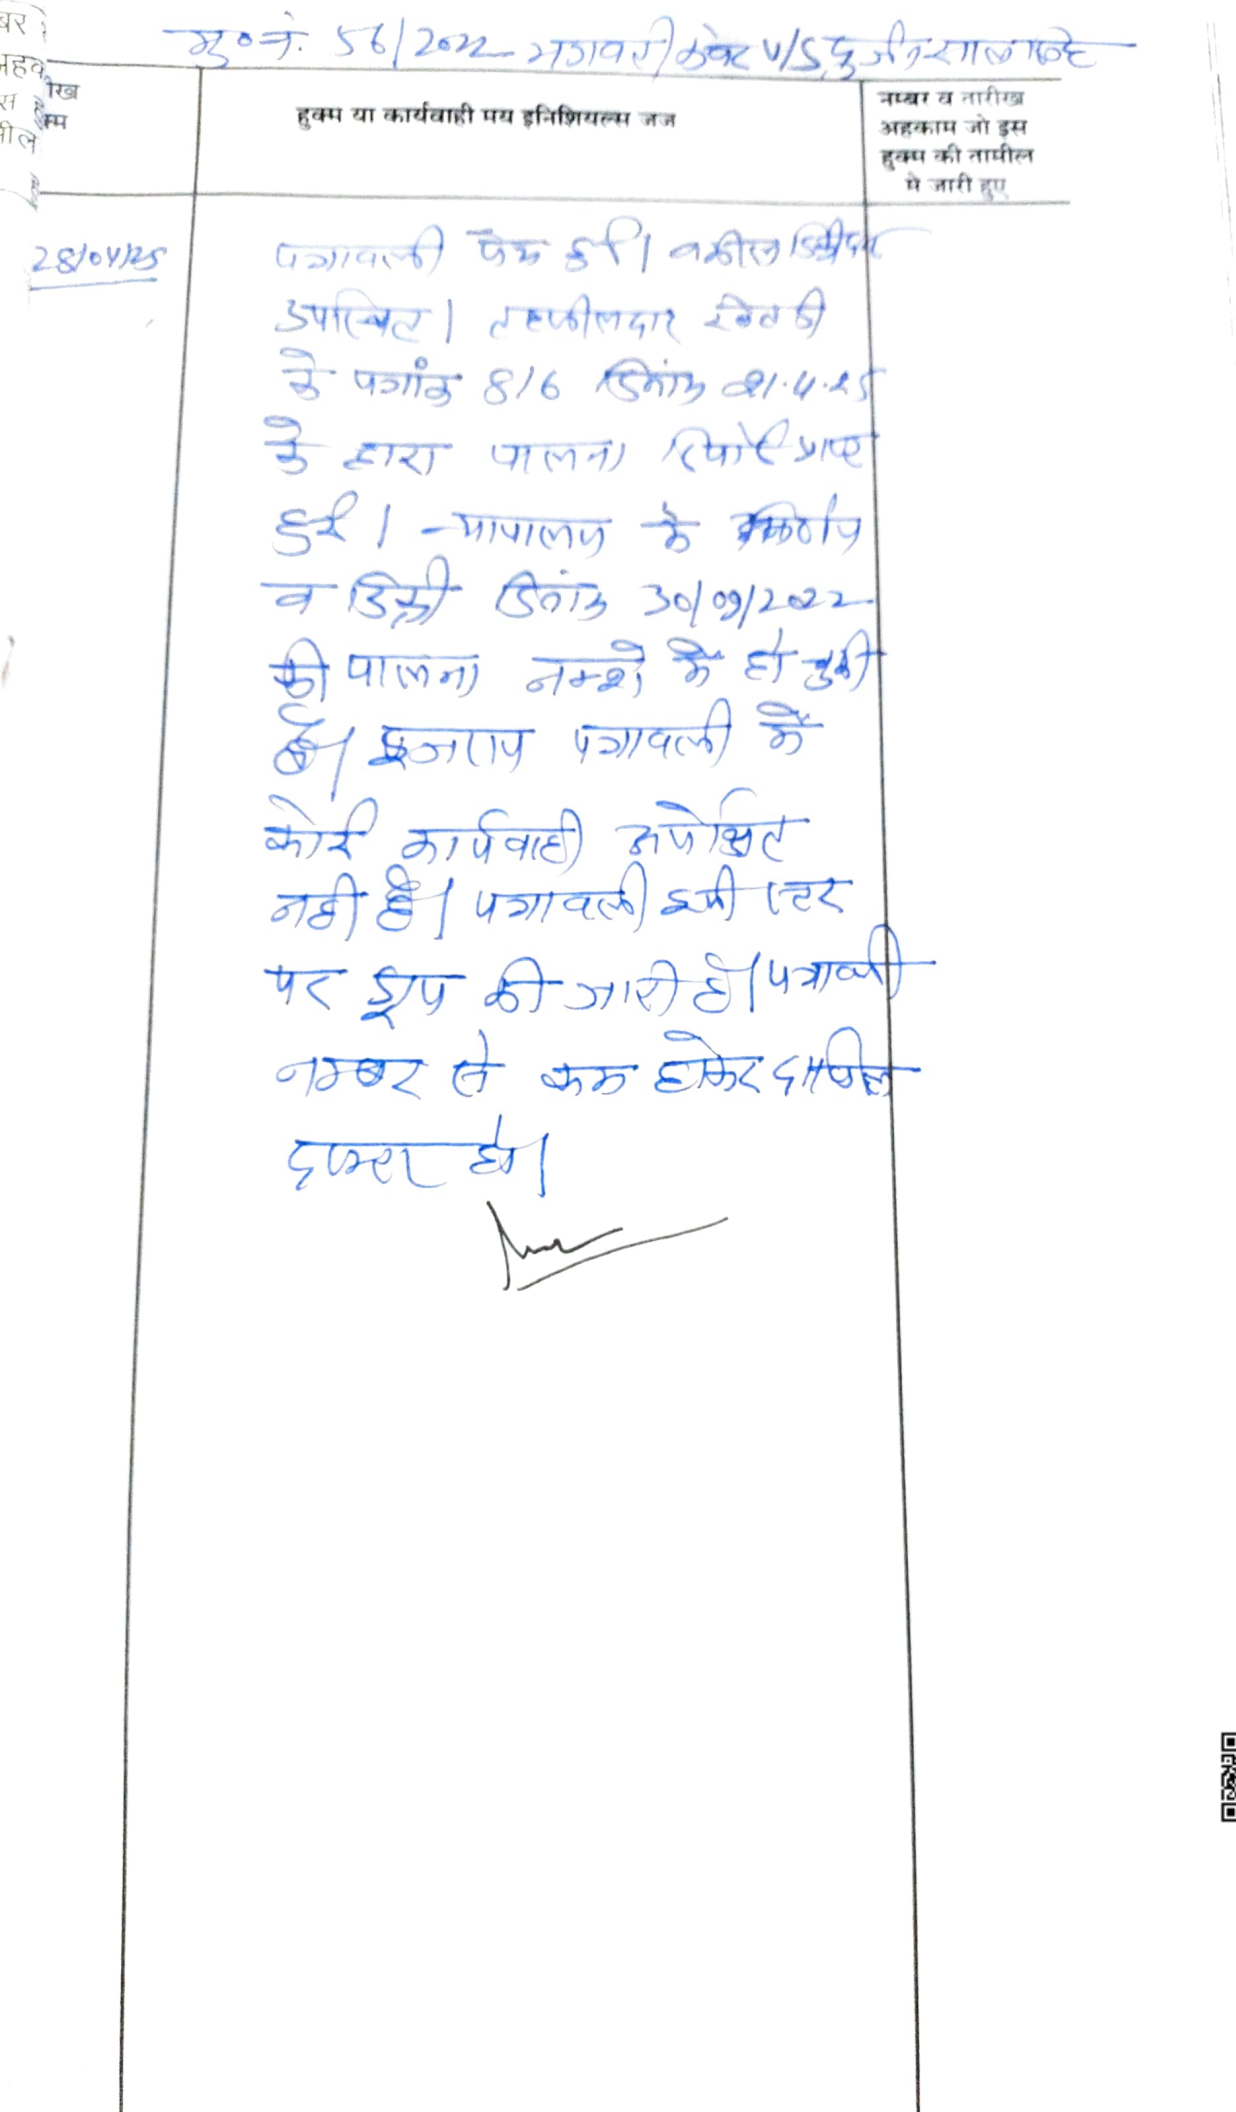 मु० नं. 56/2022 भगवती कंवर V/S दुर्जनसाल सिंह
हुक्म या कार्यवाही मय इनिशियल्स जज
नम्बर व तारीख
अहकाम जो इस
हुक्म की तामील
मे जारी हुए
28/04/25
पत्रावली पेश हुई। वकील डिक्रीदार
उपस्थित। तहसीलदार
के पत्रांक 816 दिनांक 21.4.25
के द्वारा पालना रिपोर्ट प्राप्त
हुई। न्यायालय के निर्णय
व डिक्री दिनांक 30/09/2022
की पालना नक्शे में हो चुकी
है। इजराय पत्रावली में
कोई कार्यवाही अपेक्षित
नही है। पत्रावली इसी स्टेज
पर ड्रॉप की जाती है। पत्रावली
नम्बर से कम होकर दाखिल
दफ्तर हो।